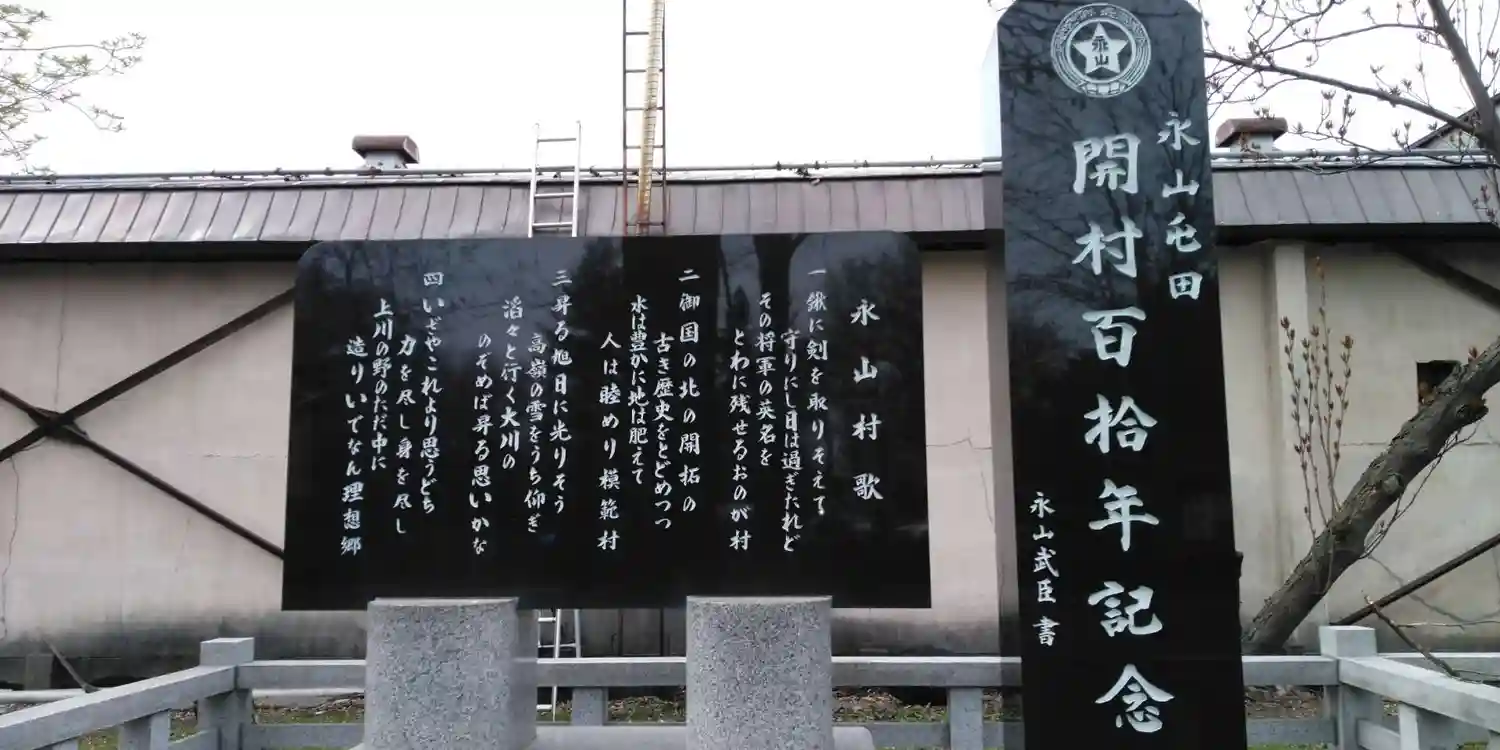 永山
永山屯田
開村百拾年記念
永山武臣 書
永山村歌
一 鍬に剣を取りそえて
守りにし日は過ぎたれど
その将軍の英名を
とわに残せるおのが村
二 御国の北の開拓の
古き歴史をとどめつつ
水は豊かに地は肥えて
人は睦めり模範村
三 昇る旭日に光りそう
高嶺の雪をうち仰ぎ
滔々と行く大川の
のぞめば昇る思いかな
四 いざやこれより思うどち
力を尽し身を尽し
上川の野のただ中に
造りいでなん理想郷